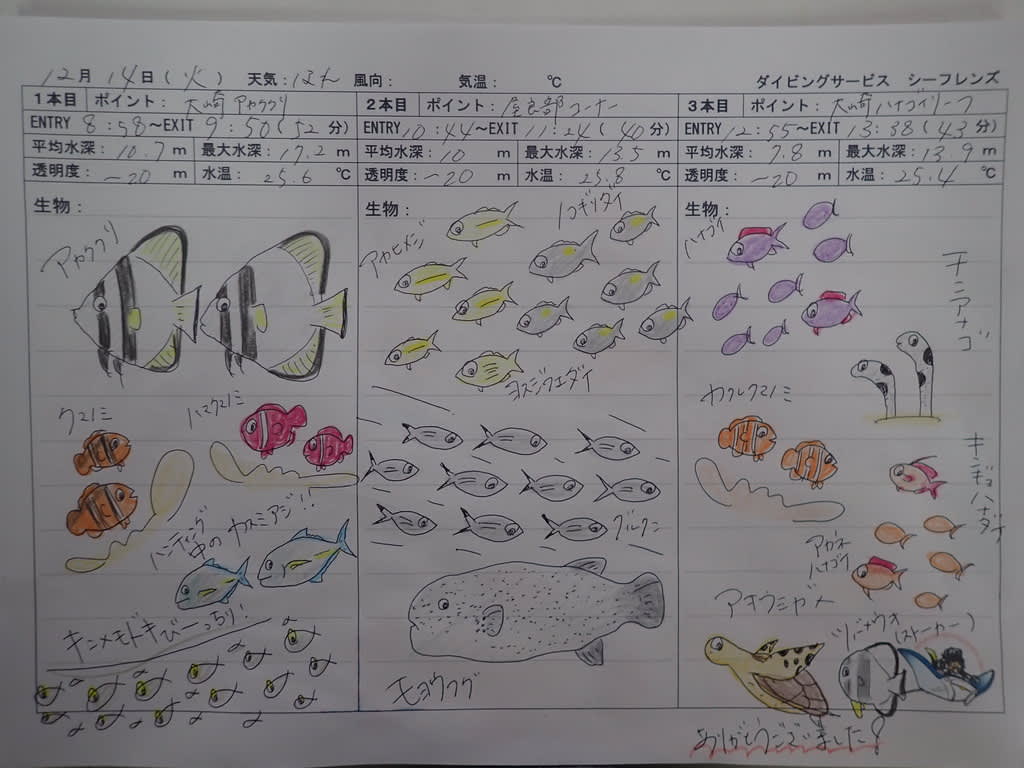 12月 14日(火) 天気:はれ 風向: 気温: ℃ ダイビングサービス シーフレンズ
1本目 ポイント: 大崎アカククリ
ENTRY 8:58～EXIT 9:50(52分)
平均水深:10.7 m 最大水深:17.2 m
透明度:~20 m 水温:25.6 ℃
生物:
アカククリ
クマノミ
ハマクマノミ
ハンティング
中の カスミアジ!!
キンメモドキびーっちり!
2本目 ポイント: 屋良部コーナー
ENTRY 10:44～EXIT 11:24(40分)
平均水深:10 m 最大水深:13.5 m
透明度:~20 m 水温:25.8 ℃
生物:
ノコギリダイ
アカヒメジ
ヨスジフエダイ
グルクン
モヨウフグ
3本目 ポイント: 大崎ハナゴイリーフ
ENTRY 12:55～EXIT 13:38(43分)
平均水深:7.8 m 最大水深:13.9 m
透明度:~20 m 水温:25.4 ℃
生物:
ハナゴイ
チンアナゴ
カクレクマノミ
キンギョハナダイ
アカネ
ハナゴイ
アオウミガメ
ツバメウオ
(ストーカー)
ありがとうございました!